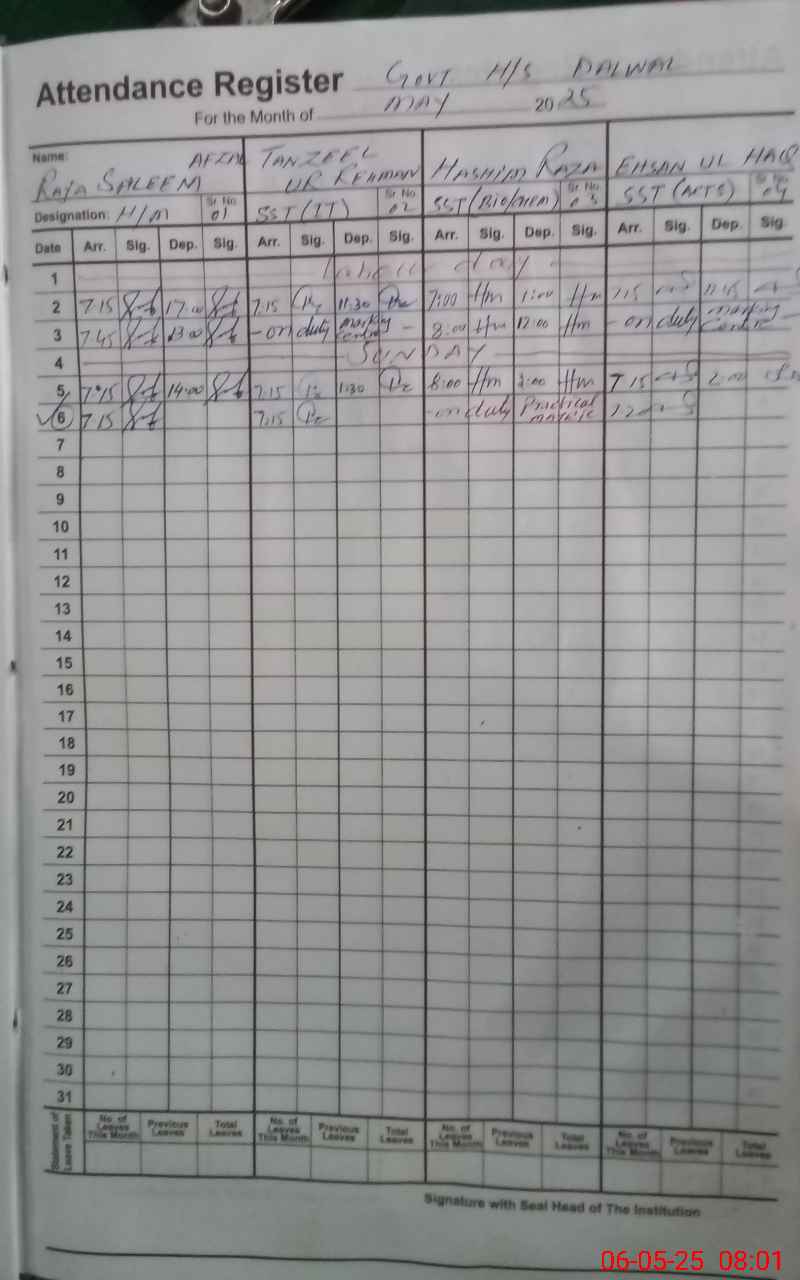 Attendance Register GOVT H/S DALWAL
For the Month of MAY 2025
Name: RAJA SALEEM AFZAL TANZEEL UR REHMAN HASHIM RAZA EHSAN UL HAQ
Designation: H/M Sr. No 01 SST (IT) Sr. No 02 SST (BIO/CHEM) Sr. No 03 SST (ARTS) Sr. No 04
Date Arr. Sig. Dep. Sig. Arr. Sig. Dep. Sig. Arr. Sig. Dep. Sig. Arr. Sig. Dep. Sig.
1 day
2 7:15 17:00 7:15 11:30 7:00 Hm 1:00 Hm
3 7:45 13:00 - on duty marking centre - 8:00 Hm 12:00 Hm - on duty marking centre
4 SUNDAY
5 7:15 14:00 7:15 1:30 8:00 Hm 2:00 Hm 7:15 2:00
6 7:15 7:15 - on duty Practical matric
7
8
9
10
11
12
13
14
15
16
17
18
19
20
21
22
23
24
25
26
27
28
29
30
31
Statement of Leave Taken No. of Leaves This Month Previous Leaves Total Leaves No. of Leaves This Month Previous Leaves Total Leaves No. of Leaves This Month Previous Leaves Total Leaves No. of Leaves This Month Previous Leaves Total Leaves
Signature with Seal Head of The Institution
06-05-25 08:01